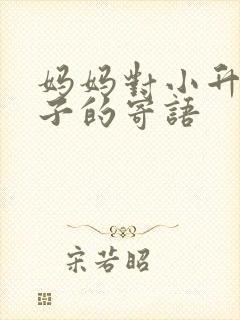 妈妈對小升
子的寄語
宋若昭